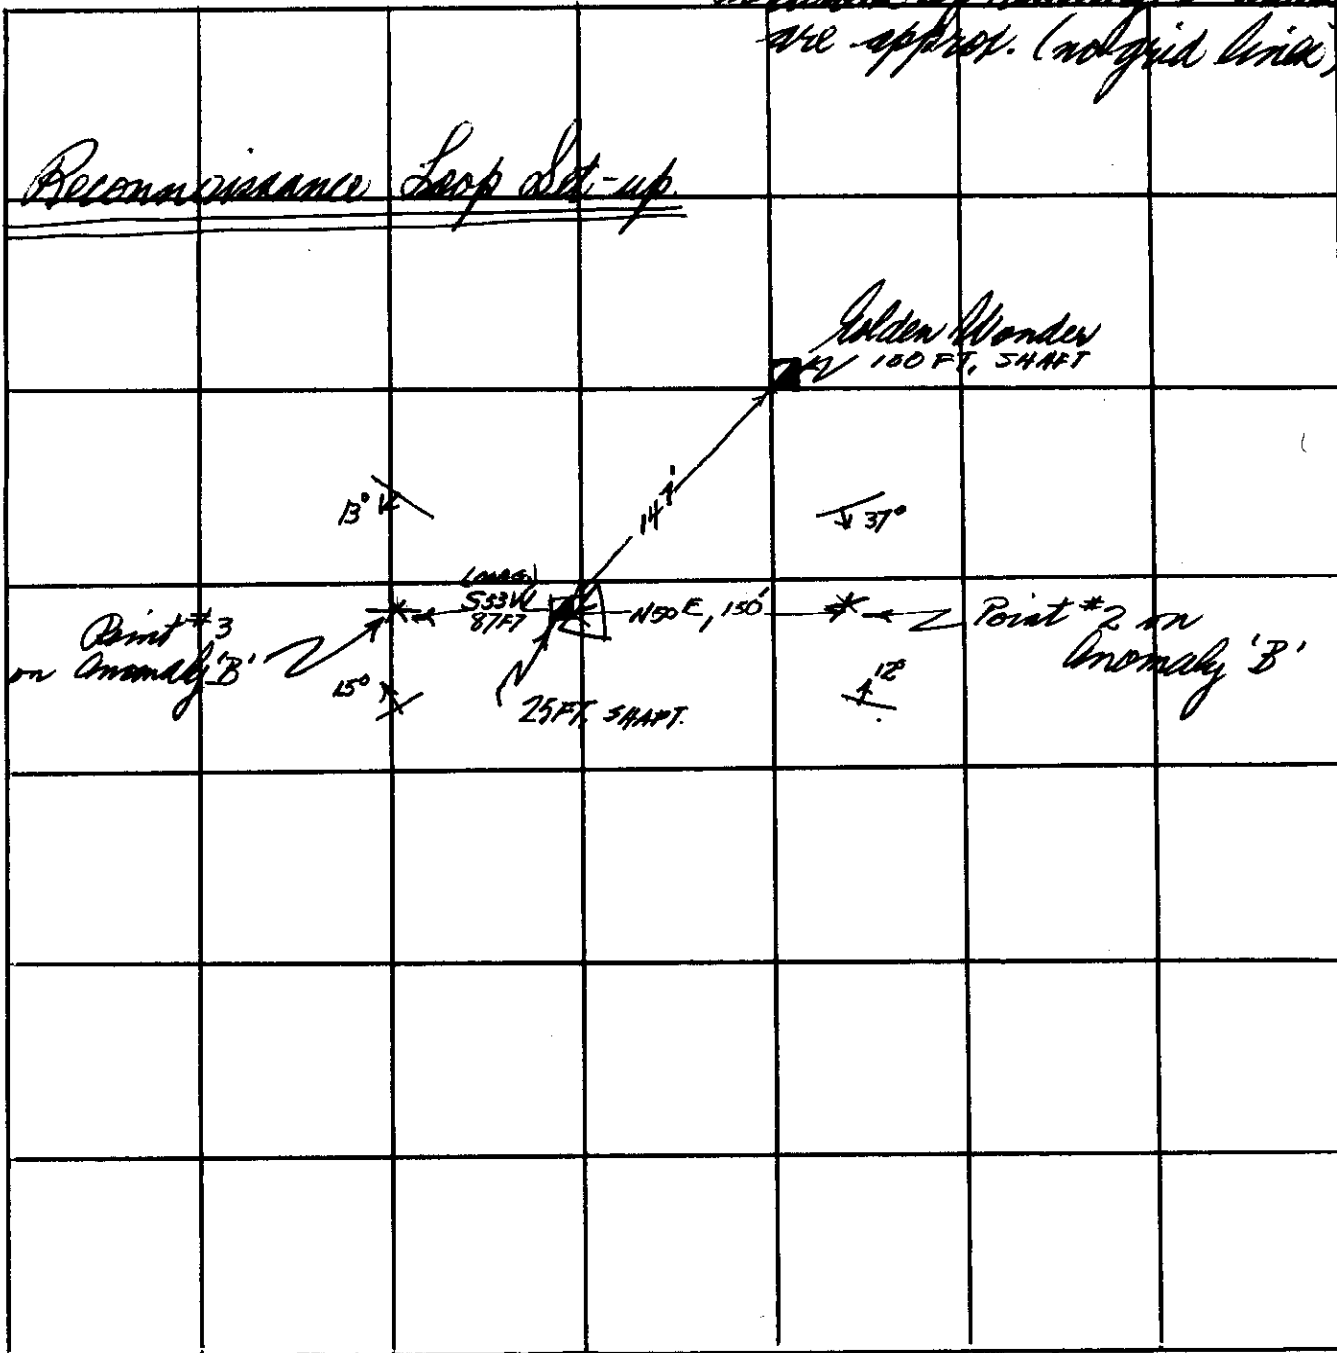 are approx. (no grid lines)
Reconnaissance Loop Set-up.
Golden Wonder
100 FT. SHAFT
13°
147'
37°
S53W
87FT
N50E, 150'
Point #3
on Anomaly 'B'
Point #2 on
Anomaly 'B'
15°
25FT. SHAFT.
12°